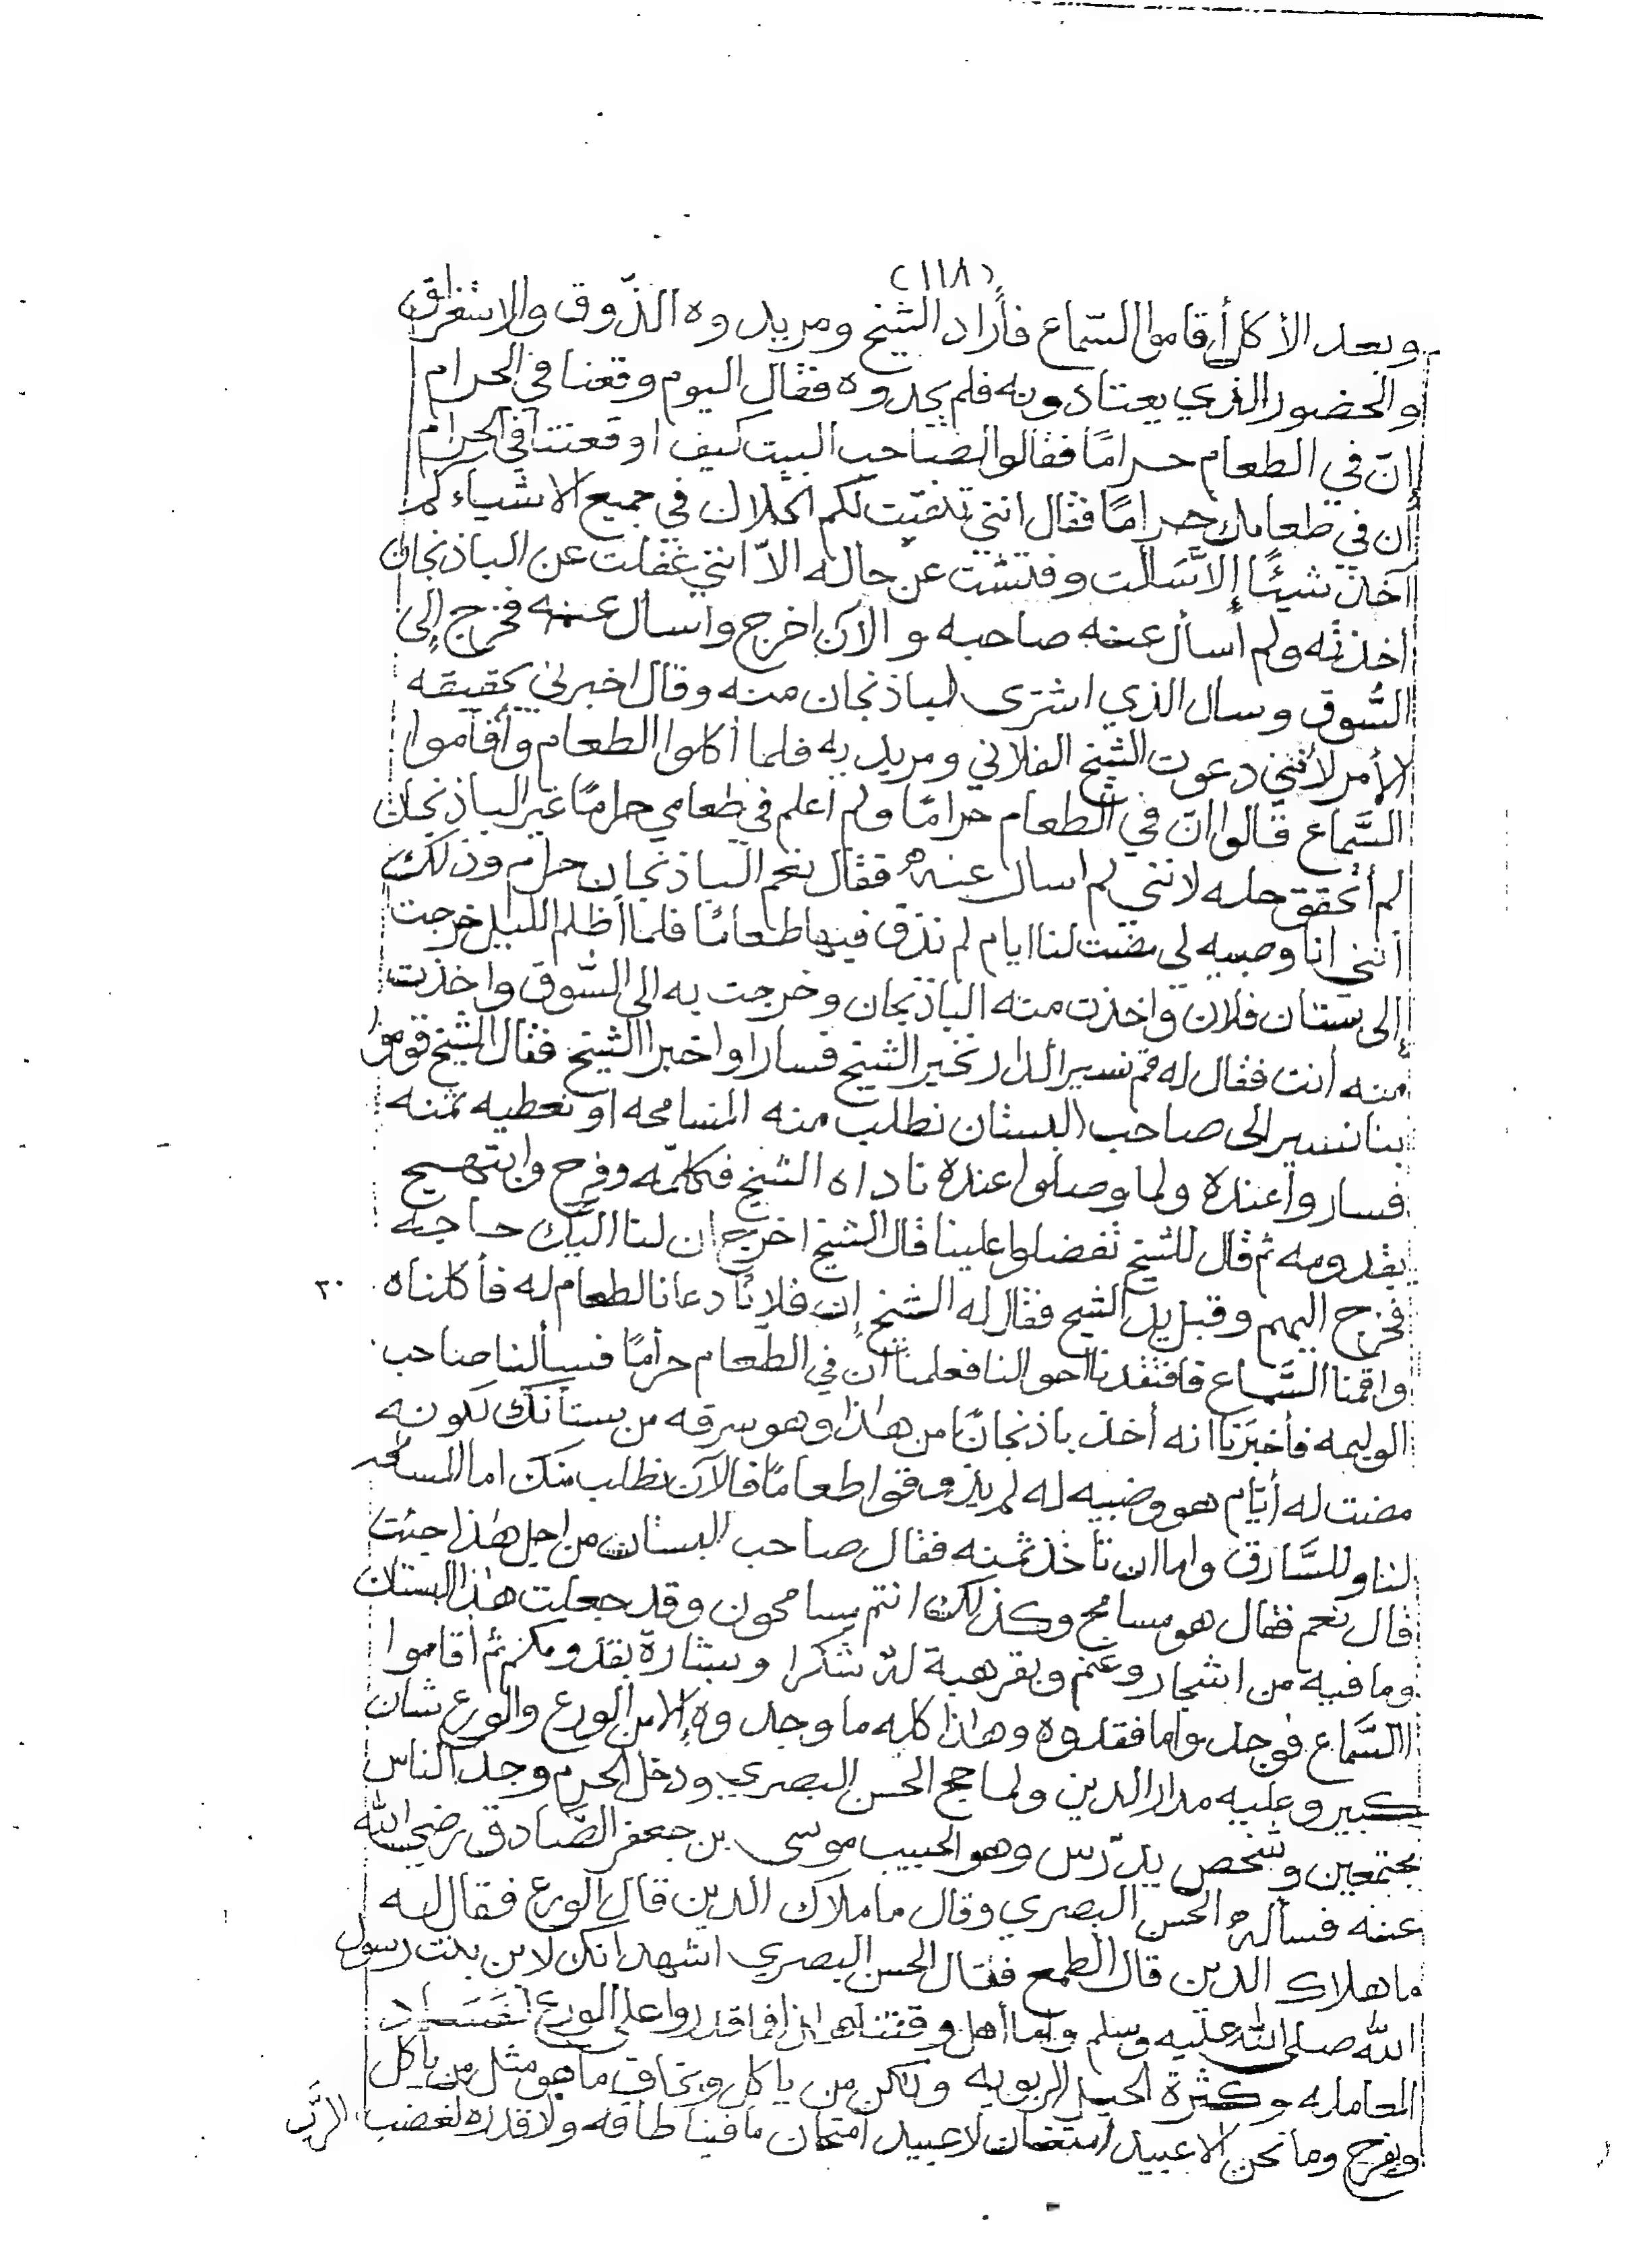 (١١٨)
وبعد الأكل أقاموا السّماع فأراد الشيخ ومريدوه الذّوق والاستغراق
والحضور الذي يعتادونه فلم يجدوه فقال اليوم وقعنا في الحرام
انّ في الطعام حرامًا فقالوا لصاحب البيت كيف اوقعتنا في الحرام
أن في طعامك حرامًا فقال انني تلقيّت لكم الحلال في جميع الاشياء لم
آخذ شيئًا إلا سَالت وفتشت عن حاله الاّ انني غفلت عن الباذنجان
اخذته ولم أسأل عنه صاحبه والآن اخرج واسال عنه فخرج إلى
السُّوق وسال الذي اشترى لباذنجان منه وقال اخبرني بحقيقه
الأمر لأنني دعوت الشيخ الفلاني ومريديه فلما أكلوا الطعام وأقاموا
السَّماع قالوا انّ في الطعام حرامًا ولم أعلم في طعامي حرامًا غير الباذنجان
لم أتحقق حله لانني لم اسال عنه فقال نعم الباذنجان حرام وذلك
أنني انا وصبيه لي مضت لنا ايام لم نذق فيها طعامًا فلما أظلم الليل خرجت
إلى بستان فلان واخذت منه الباذنجان وخرجت به الى السّوق واخذت
منه أنت فقال له قم نسير ألدار نخبر الشيخ فسارا واخبرا الشيخ فقال الشيخ قوموا
بنا نسير الى صاحب البستان نطلب منه المسامحه او نعطيه ثمنه
فساروا عنده ولما وصلوا عنده ناداه الشيخ فكلّمه وفرح وابتهج
بقدومه ثم قال للشيخ تفضلوا علينا قال الشيخ اخرج ان لنا اليك حاجه
فخرج اليهم وقبل يد الشيخ فقال له الشيخ إن فلانًا دعانا لطعام له فأكلناه
٣٠
واقمنا السَّماع فافتقدنا احوالنا فعلمنا ان في الطعام حرامًا فسألنا صاحب
الوليمه فأخبَرنا انه أخذ باذنجانًا من هاذا وهو سرقه من بستانك لكونه
مضت له أيّام هو وصبيه له لم يذوقوا طعامًا فالآن نطلب منك اما المسامحه
لنا وللسَّارق واما ان تأخذ ثمنه فقال صاحب البستان من اجل هٰذا جئت
قال نعم فقال هو مسامح وكذلك انتم مسامحون وقد جعلت هذا البستان
وما فيه من اشجار وغنم وبقر هبة له شكرا وبشارة بقدومكم ثم أقاموا
السَّماع فوجدوا ما فقدوه وهاذا كله ما وجدوه إلا من الورع والورع شان
كبير وعليه مدار الدين ولما حج الحسن البصري ودخل الحرم وجد الناس
مجتمعين وشخص يدرّس وهو الحبيب موسى بن جعفر الصّادق رضي الله
عنه فسأله الحسن البصري وقال ما ملاك الدين قال الورع فقال له
ما هلاك الدين قال الطمع فقال الحسن البصري اشهد انك لابن بنت رسول
الله صلى الله عليه وسلم واما أهل وقتنا هاذا فما قدروا على الورع لفساد
المعامله وكثرة الحيل الربويه ولكن من ياكل ويخاف ما هو مثل من يأكل
ويفرح وما نحن الا عبيد امتنان لا عبيد امتحان ما فينا طاقه ولا قدره لغضب الرَّب